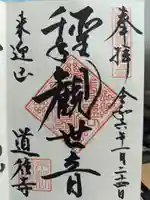 奉拝
令和六年一月二十四日
聖観世音
来迎山
道往寺